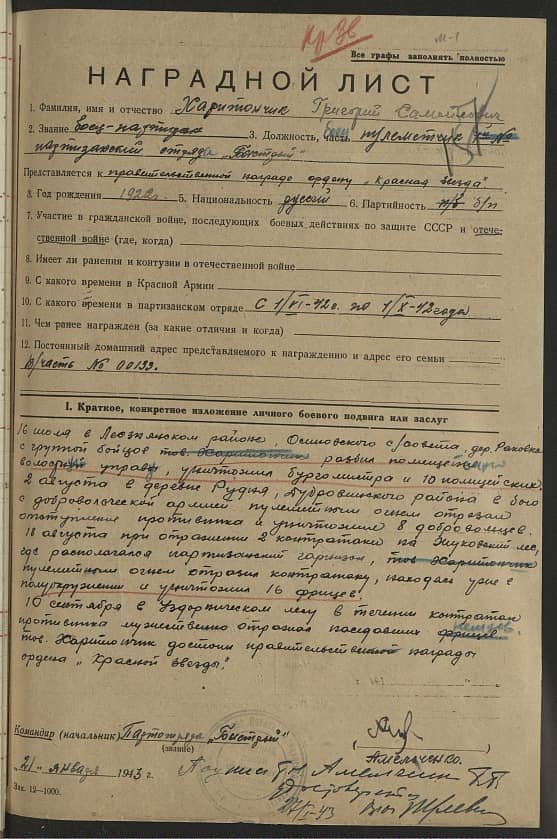 Кр Зв
М-1
Все графы заполнять полностью
НАГРАДНОЙ ЛИСТ
1. Фамилия, имя и отчество Харитончик Григорий
2. Звание Боец-партизан 3. Должность, часть боец пулеметчик
партизанский отряд "Быстрый"
Представляется к правительственной награде ордену "Красная звезда"
3. Год рождения 1922г. 5. Национальность русский 6. Партийность н/б б/п
7. Участие в гражданской войне, последующих боевых действиях по защите СССР и отече-
ственной войне (где, когда)
8. Имеет ли ранения и контузии в отечественной войне
9. С какого времени в Красной Армии
10. С какого времени в партизанском отряде С 1/VI-42г. по 1/X-42года
11. Чем ранее награжден (за какие отличия и когда)
12. Постоянный домашний адрес представляемого к награждению и адрес его семьи
В/часть № 00133.
I. Краткое, конкретное изложение личного боевого подвига или заслуг
16 июля в Лиозnянском районе, Осиновского с/совета, дер. Раковка
с группой бойцов тов. Харитончик разбил полицейскую
волосную управу, уничтожил бургомистра и 10 полицейских.
2 августа в деревне Рудня, Дубровинского района в бою
с добровольческой армией пулеметным огнем отрезал
отступление противника и уничтожил 8 добровольцев.
18 августа при отражении 2 контратаки на лес,
где располагался партизанский гарнизон, тов Харитончик
пулеметным огнем отразил контратаку, находясь уже в
полуокружении и уничтожил 16 фрицев.
10 сентября в лесу в течении контратак
противника мужественно отражал наседавших фрицев немцев.
тов. Харитончик достоин правительственной награды
ордена "Красной звезды."
Командир (начальник) Партотряда "Быстрый"
(звание)
Амельченко.
"21" января 1943 г.
Зак. 12—1000.
27/I-43